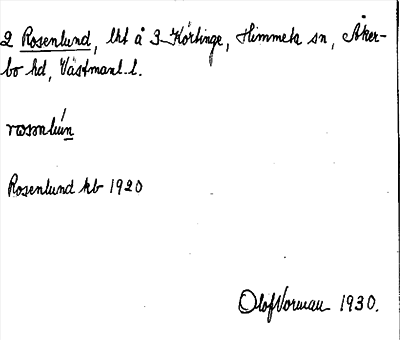 2 Rosenlund, lht å 3 Körtinge, Himmeta sn, Åker-
bo hd, Västmanl. l.
Rosenlund kb 1920
Olof Vorman 1930.